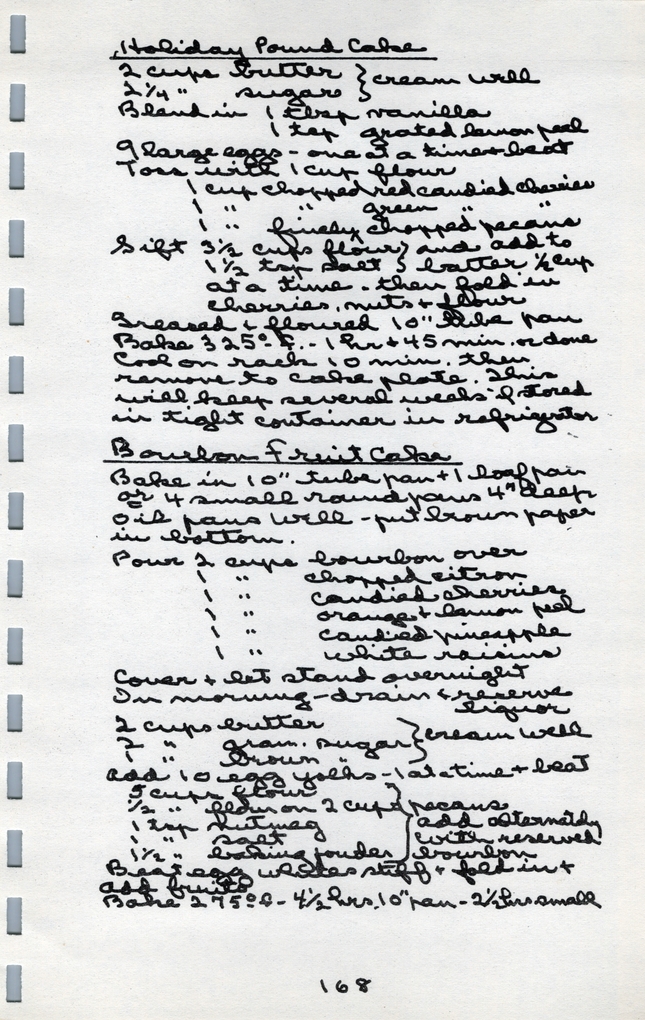 Holiday Pound Cake
2 cups butter } cream well
2 1/4 " sugar
Blend in 1 tbsp vanilla
1 tsp grated lemon peel
9 large eggs - one at a time + beat
Toss with 1 cup flour
1 cup chopped red candied cherries
1 " " green " "
1 " finely chopped pecans
Sift 3 1/2 cups flour } and add to
1 1/2 tsp salt } batter 1/2 cup
at a time. then fold in
cherries, nuts + flour
Greased + floured 10" tube pan
Bake 325° F. - 1 hr + 45 min. or done
Cool on rack 10 min. then
remove to cake plate. This
will keep several weeks if stored
in tight container in refrigerator
Bourbon Fruit Cake
Bake in 10" tube pan + 1 loaf pan
or 4 small round pans 4" deep
Oil pans well - put brown paper
in bottom.
Pour 2 cups bourbon over
1 " chopped citron
1 " candied cherries
1 " orange + lemon peel
1 " candied pineapple
1 " white raisins
Cover + let stand overnight
In morning - drain + reserve
liquor
2 cups butter
2 " gran. sugar } cream well
1 " brown "
add 10 egg yolks - 1 at a time + beat
5 cups flour
1/2 " flour on 2 cups pecans
1 tsp nutmeg } add alternately
1 " salt with reserved
1 1/2 " baking powder bourbon
Beat egg whites stiff + fold in +
add fruits
Bake 275° F - 4 1/2 hrs. 10" pan - 2 1/2 hrs small
168